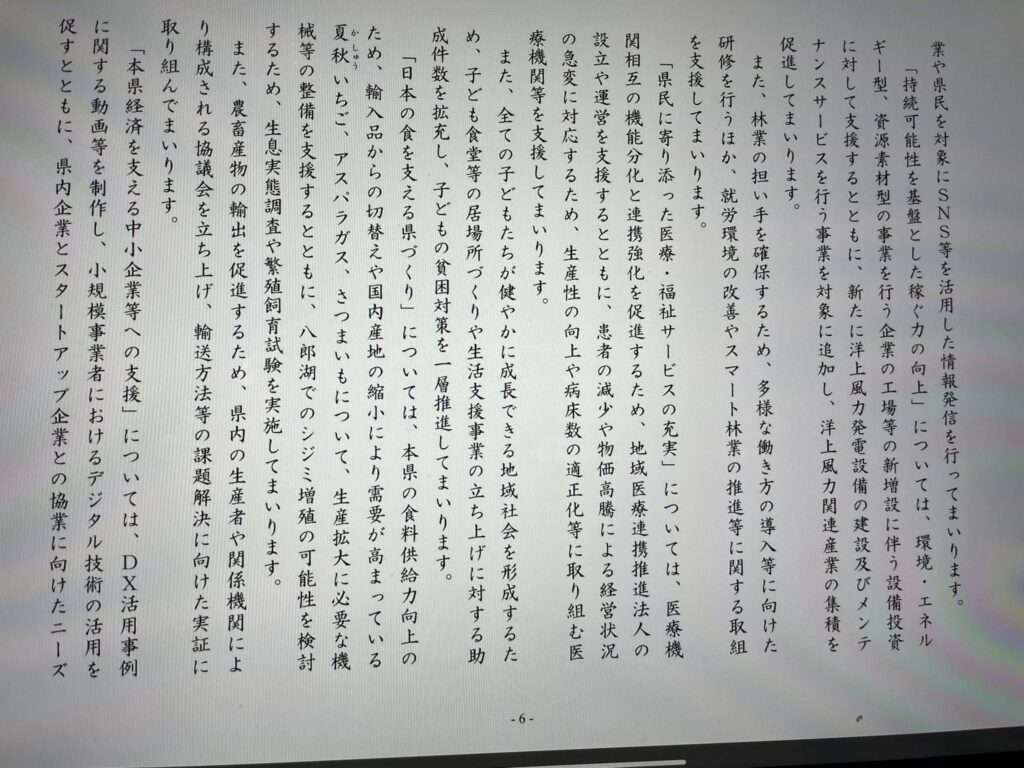 業や県民を対象にＳＮＳ等を活用した情報発信を行ってまいります。
「持続可能性を基盤とした稼ぐ力の向上」については、環境・エネル
ギー型、資源素材型の事業を行う企業の工場等の新増設に伴う設備投資
に対して支援するとともに、新たに洋上風力発電設備の建設及びメンテ
ナンスサービスを行う事業を対象に追加し、洋上風力関連産業の集積を
促進してまいります。
また、林業の担い手を確保するため、多様な働き方の導入等に向けた
研修を行うほか、就労環境の改善やスマート林業の推進等に関する取組
を支援してまいります。
「県民に寄り添った医療・福祉サービスの充実」については、医療機
関相互の機能分化と連携強化を促進するため、地域医療連携推進法人の
設立や運営を支援するとともに、患者の減少や物価高騰による経営状況
の急変に対応するため、生産性の向上や病床数の適正化等に取り組む医
療機関等を支援してまいります。
また、全ての子どもたちが健やかに成長できる地域社会を形成するた
め、子ども食堂等の居場所づくりや生活支援事業の立ち上げに対する助
成件数を拡充し、子どもの貧困対策を一層推進してまいります。
「日本の食を支える県づくり」については、本県の食料供給力向上の
ため、輸入品からの切替えや国内産地の縮小により需要が高まっている
夏秋いちご、アスパラガス、さつまいもについて、生産拡大に必要な機
かしゅう
械等の整備を支援するとともに、八郎湖でのシジミ増殖の可能性を検討
するため、生息実態調査や繁殖飼育試験を実施してまいります。
また、農畜産物の輸出を促進するため、県内の生産者や関係機関によ
り構成される協議会を立ち上げ、輸送方法等の課題解決に向けた実証に
取り組んでまいります。
「本県経済を支える中小企業等への支援」については、ＤＸ活用事例
に関する動画等を制作し、小規模事業者におけるデジタル技術の活用を
促すとともに、県内企業とスタートアップ企業との協業に向けたニーズ
- 6 -